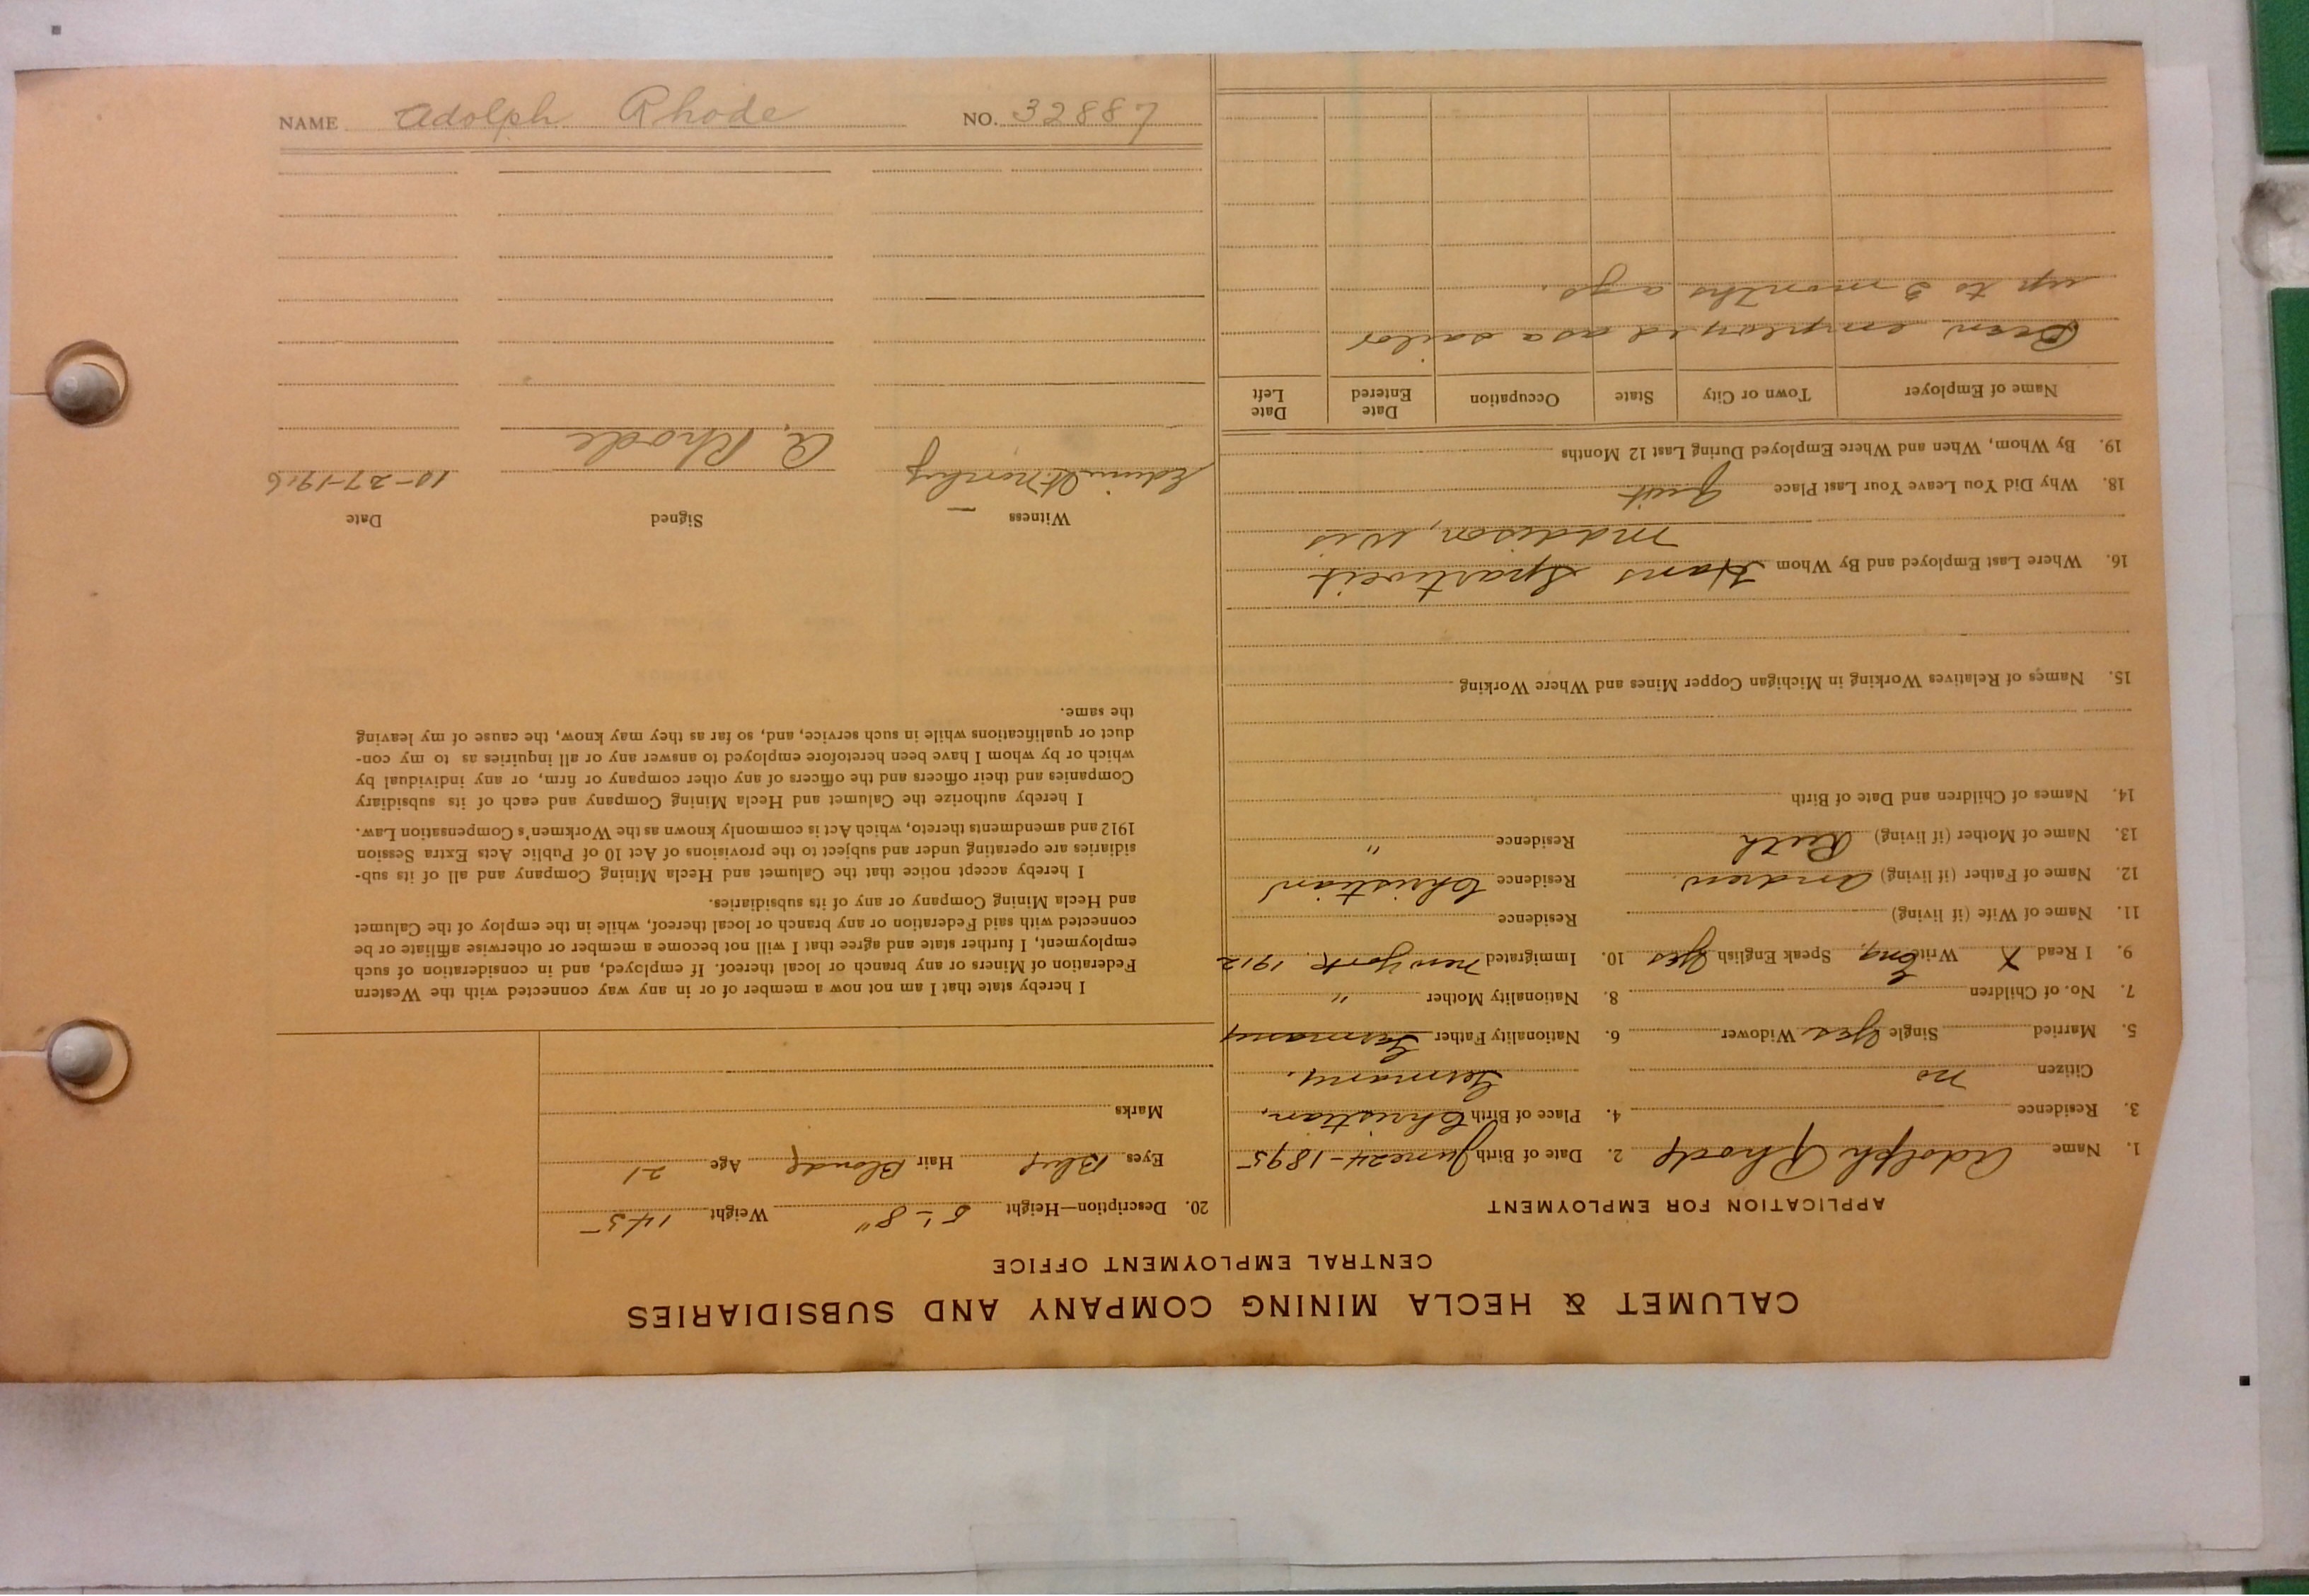 NAME Adolph Rhode NO. 32887
CALUMET & HECLA MINING COMPANY AND SUBSIDIARIES
CENTRAL EMPLOYMENT OFFICE
APPLICATION FOR EMPLOYMENT
1. Name Adolph Rhode 2. Date of Birth June 24-1895
3. Residence 4. Place of Birth Christian,
Citizen no Germany.
5. Married Single Yes Widower 6. Nationality Father Germany
7. No. of Children 8. Nationality Mother "
9. I Read X Write Eng. Speak English Yes 10. Immigrated New York, 1912
11. Name of Wife (if living) Residence
12. Name of Father (if living) Andrew Residence Christian
13. Name of Mother (if living) Ruth Residence "
14. Names of Children and Date of Birth
15. Names of Relatives Working in Michigan Copper Mines and Where Working
16. Where Last Employed and By Whom Hans
Madison, Wis
18. Why Did You Leave Your Last Place Quit
19. By Whom, When and Where Employed During Last 12 Months
Name of Employer Town or City State Occupation Date Entered Date Left
Been employed as a sailor
up to 3 months ago.
20. Description—Height 5'-8" Weight 145
Eyes Blue Hair Blonde Age 21
Marks
I hereby state that I am not now a member of or in any way connected with the Western
Federation of Miners or any branch or local thereof. If employed, and in consideration of such
employment, I further state and agree that I will not become a member or otherwise affiliate or be
connected with said Federation or any branch or local thereof, while in the employ of the Calumet
and Hecla Mining Company or any of its subsidiaries.
I hereby accept notice that the Calumet and Hecla Mining Company and all of its sub-
sidiaries are operating under and subject to the provisions of Act 10 of Public Acts Extra Session
1912 and amendments thereto, which Act is commonly known as the Workmen's Compensation Law.
I hereby authorize the Calumet and Hecla Mining Company and each of its subsidiary
Companies and their officers and the officers of any other company or firm, or any individual by
which or by whom I have been heretofore employed to answer any or all inquiries as to my con-
duct or qualifications while in such service, and, so far as they may know, the cause of my leaving
the same.
Witness Signed Date
A. Rhode 10-27-1916